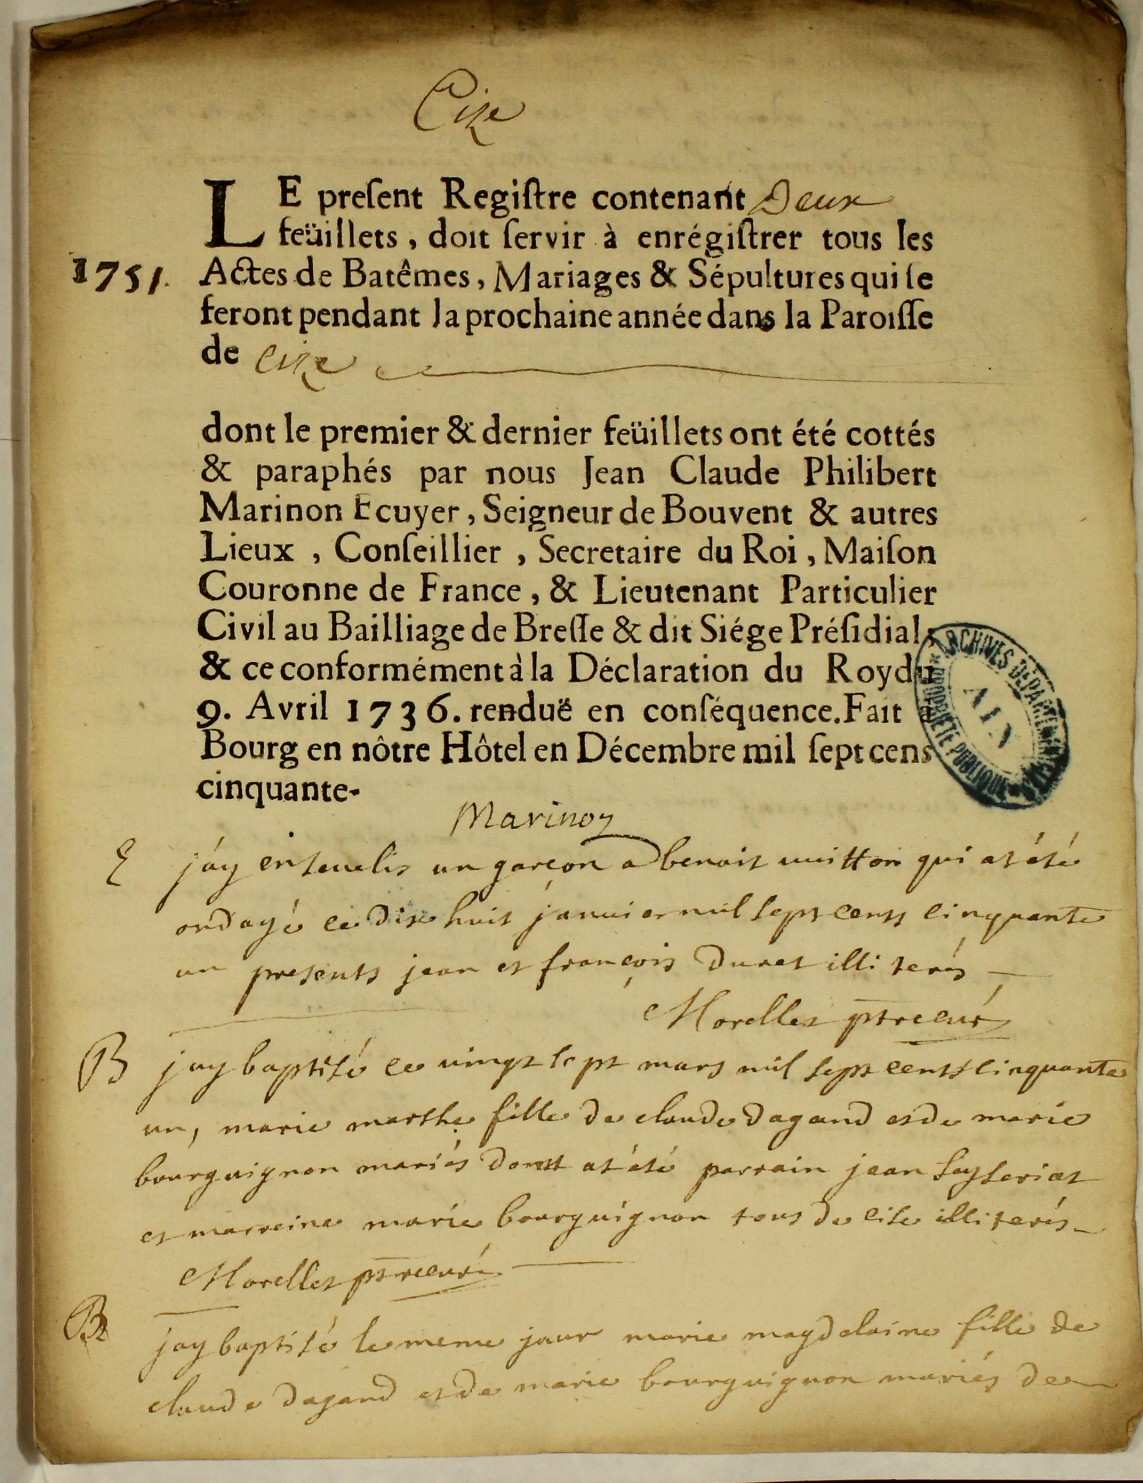 Cize
LE preſent Regiſtre contenant Deux
feüillets, doit ſervir à enrégiſtrer tous les
1751. Actes de Batêmes, Mariages & Sépultures qui ſe
feront pendant la prochaine année dans la Paroiſſe
de Cize
dont le premier & dernier feüillets ont été cottés
& paraphés par nous Jean Claude Philibert
Marinon Ecuyer, Seigneur de Bouvent & autres
Lieux, Conſeillier, Secretaire du Roi, Maiſon
Couronne de France, & Lieutenant Particulier
Civil au Bailliage de Breſſe & dit Siége Préſidial,
& ce conformément à la Déclaration du Roy du
9. Avril 1736. renduë en conſéquence. Fait à
Bourg en nôtre Hôtel en Décembre mil ſept cens
cinquante.
ARCHIVES DÉPARTEMENTALES
AIN
PROPRIÉTÉ PUBLIQUE
Marinon
E jáy enseuelis un garçon a benoit uuitton qui at été
ondoyé ce dixe huit januier mil sept cents cinquante
un presents jean et françois Duret illiterés
Morellet ptre curé
B jay baptisé ce uingt sept mars mil sept cents cinquante
un, marie marthe fille de claude dagand et de marie
bourguignon mariés dont at été parrain jean
et marreine marie bourguignon tous de cise illiterés
Morellet ptre curé
B jay baptisé le meme jour marie magdelaine fille de
claude dagand et de marie bourguignon mariés de